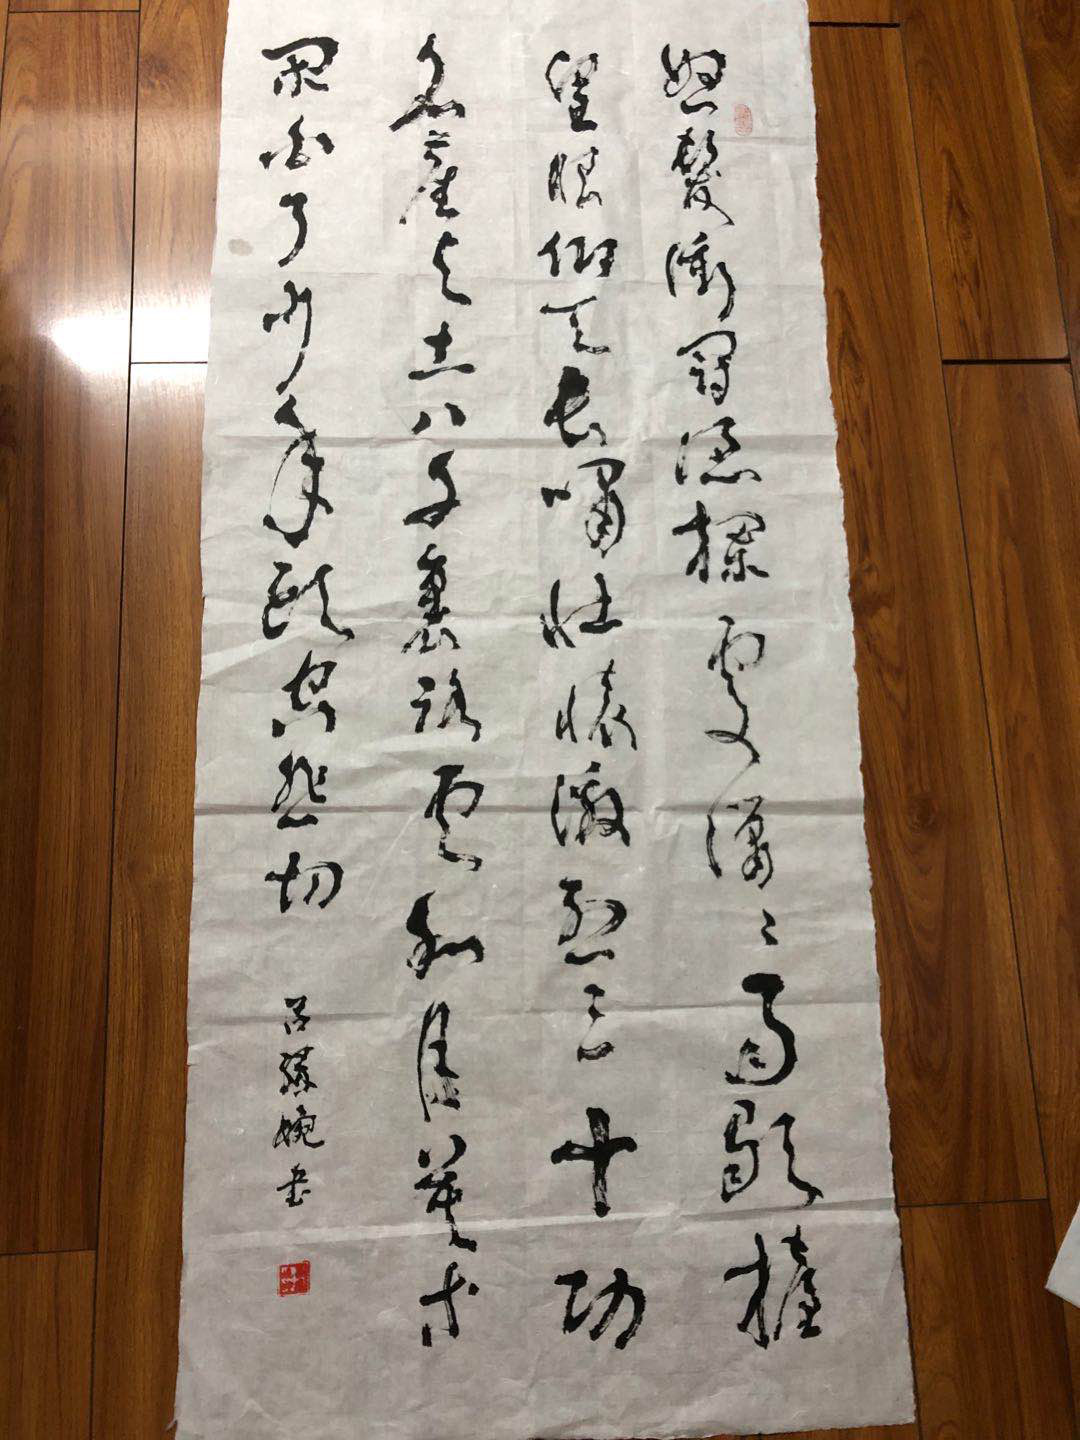 怒髮衝冠憑欄處瀟〻雨歇擡
望眼仰天長嘯壯懷激烈三十功
名塵与土八千裏路雲和月莫等
閑白了少年頭空悲切
吕婉書